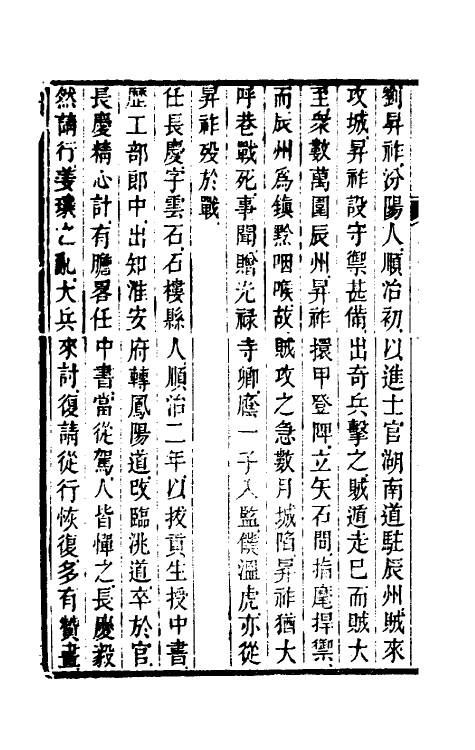 劉昇祚汾陽人順治初以進士官湖南道駐辰州賊來
攻城昇祚設守禦甚備出奇兵擊之賊遁走巳而賊大
至衆數萬圍辰州昇祚擐甲登陴立矢石間指麾捍禦
而辰州爲鎮黔咽喉故賊攻之急數月城陷昇祚猶大
呼巷戰死事聞贈光祿寺卿廕一子入監僕溫虎亦從
昇祚殁於戰
任長慶字雲石石樓縣人順治二年以拔貢生授中書
歷工部郎中出知淮安府轉鳳陽道改臨洮道卒於官
長慶精心計有膽畧任中書當從駕人皆憚之長慶毅
然請行姜瓖之亂大兵來討復請從行恢復多有贊畫